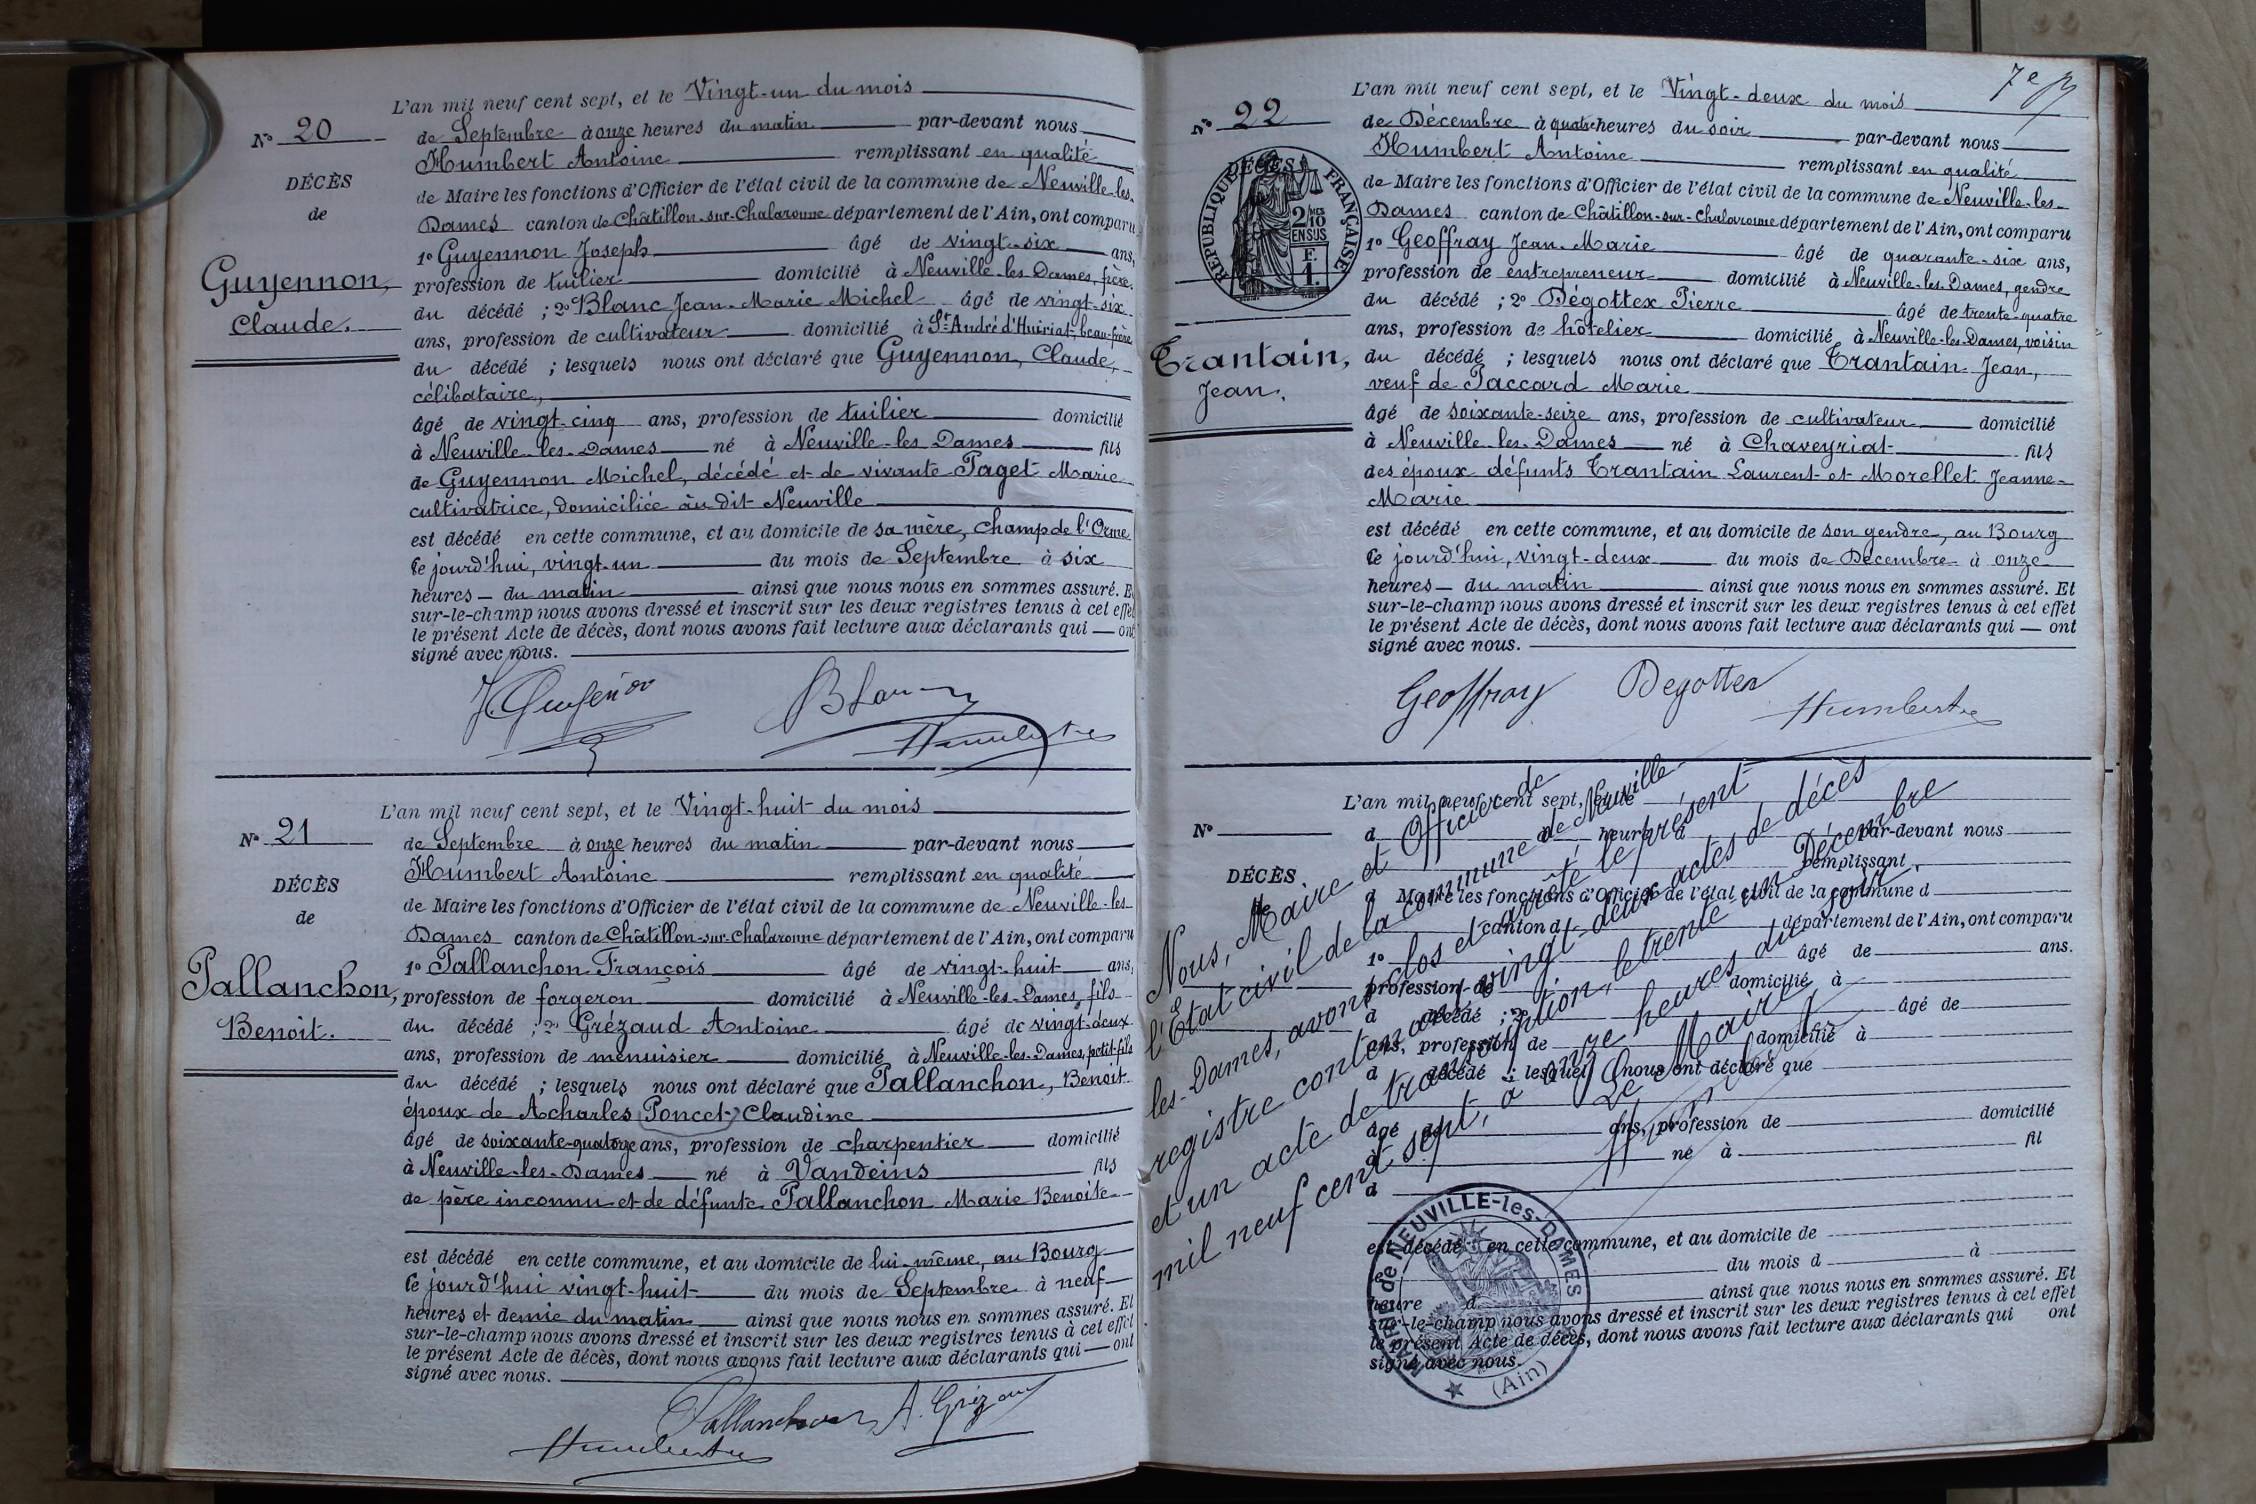 L'an mil neuf cent sept, et le Vingt-un du mois
N° 20
de Septembre à onze heures du matin par-devant nous
Humbert Antoine remplissant en qualité
DÉCÈS
de Maire les fonctions d'Officier de l'état civil de la commune de Neuville-les-
de
Dames canton de Châtillon-sur-Chalaronne département de l'Ain, ont comparu
1° Guyennon Joseph âgé de vingt-six ans,
Guyennon,
profession de tuilier domicilié à Neuville-les-Dames, frère
du décédé ; 2° Blanc Jean-Marie Michel âgé de vingt-six
Claude.
ans, profession de cultivateur domicilié à St André d'Huiriat, beau-frère
du décédé ; lesquels nous ont déclaré que Guyennon, Claude,
célibataire,
âgé de vingt-cinq ans, profession de tuilier domicilié
à Neuville-les-Dames né à Neuville-les-Dames fils
de Guyennon Michel, décédé et de vivante Paget Marie
cultivatrice, domiciliée au dit Neuville
est décédé en cette commune, et au domicile de sa mère, champ de l'Orme
Ce jourd'hui, vingt-un du mois de Septembre à six
heures du matin ainsi que nous nous en sommes assuré. E
sur-le-champ nous avons dressé et inscrit sur les deux registres tenus à cet effet
le présent Acte de décès, dont nous avons fait lecture aux déclarants qui — ont
signé avec nous.
Humbert
L'an mil neuf cent sept, et le Vingt-huit du mois
N° 21
de Septembre à onze heures du matin par-devant nous
Humbert Antoine remplissant en qualité
DÉCÈS
de Maire les fonctions d'Officier de l'état civil de la commune de Neuville-les-
de
Dames canton de Châtillon-sur-Chalaronne département de l'Ain, ont comparu
1° Pallanchon François âgé de vingt-huit ans,
Pallanchon,
profession de forgeron domicilié à Neuville-les-Dames, fils
du décédé ; 2° Grézaud Antoine âgé de vingt-deux
Benoit.
ans, profession de menuisier domicilié à Neuville-les-Dames, petit-fils
du décédé ; lesquels nous ont déclaré que Pallanchon, Benoit
époux de Acharles (Poncet) Claudine
âgé de soixante-quatorze ans, profession de charpentier domicilié
à Neuville-les-Dames né à Vandeins fils
de père inconnu et de défunte Pallanchon Marie Benoite
est décédé en cette commune, et au domicile de lui-même, au Bourg
Ce jourd'hui vingt-huit du mois de Septembre à neuf
heures et demie du matin ainsi que nous nous en sommes assuré. Et
sur-le-champ nous avons dressé et inscrit sur les deux registres tenus à cet effet
le présent Acte de décès, dont nous avons fait lecture aux déclarants qui — ont
signé avec nous.
Pallanchon A. Grézaud
Humbert
7e
L'an mil neuf cent sept, et le Vingt-deux du mois
N° 22
de Décembre à quatre heures du soir par-devant nous
Humbert Antoine remplissant en qualité
DÉCÈS
RÉPUBLIQUE FRANÇAISE
2 10 MES
EN SUS
F.
1.
de Maire les fonctions d'Officier de l'état civil de la commune de Neuville-les-
Dames canton de Châtillon-sur-Chalaronne département de l'Ain, ont comparu
1° Geoffray Jean-Marie âgé de quarante-six ans,
profession de entrepreneur domicilié à Neuville-les-Dames, gendre
du décédé ; 2° Dégottex Pierre âgé de trente-quatre
ans, profession de hôtelier domicilié à Neuville-les-Dames, voisin
Trantain,
du décédé ; lesquels nous ont déclaré que Trantain Jean,
Jean.
veuf de Paccard Marie
âgé de soixante-seize ans, profession de cultivateur domicilié
à Neuville-les-Dames né à Chaveyriat fils
des époux défunts Trantain Laurent et Morellet Jeanne-
Marie
est décédé en cette commune, et au domicile de son gendre, au Bourg
Ce jourd'hui, vingt-deux du mois de Décembre à onze
heures — du matin ainsi que nous nous en sommes assuré. Et
sur-le-champ nous avons dressé et inscrit sur les deux registres tenus à cet effet
le présent Acte de décès, dont nous avons fait lecture aux déclarants qui — ont
signé avec nous.
Geoffray Degottex Humbert
L'an mil neuf cent sept, et le
N°
d à heure d par-devant nous
remplissant
DÉCÈS
d Maire les fonctions d'Officier de l'état civil de la commune d
de
canton d département de l'Ain, ont comparu
1° âgé de ans.
profession de domicilié à
d décédé ; 2° âgé de
ans, profession de domicilié à
d décédé ; lesquels nous ont déclaré que
âgé de ans, profession de domicilié
à né à fil
d
est décédé en cette commune, et au domicile de
du mois d à
heure d ainsi que nous nous en sommes assuré. Et
sur-le-champ nous avons dressé et inscrit sur les deux registres tenus à cet effet
le présent Acte de décès, dont nous avons fait lecture aux déclarants qui ont
signé avec nous.
Nous, Maire et Officier de
l'Etat civil de la commune de Neuville-
les-Dames, avons clos et arrêté le présent
registre contenant vingt-deux actes de décès
et un acte de transcription, le trente un Décembre
mil neuf cent sept, à onze heures du soir.
Le Maire
Humbert
MAIRIE de NEUVILLE-les-DAMES
(Ain)